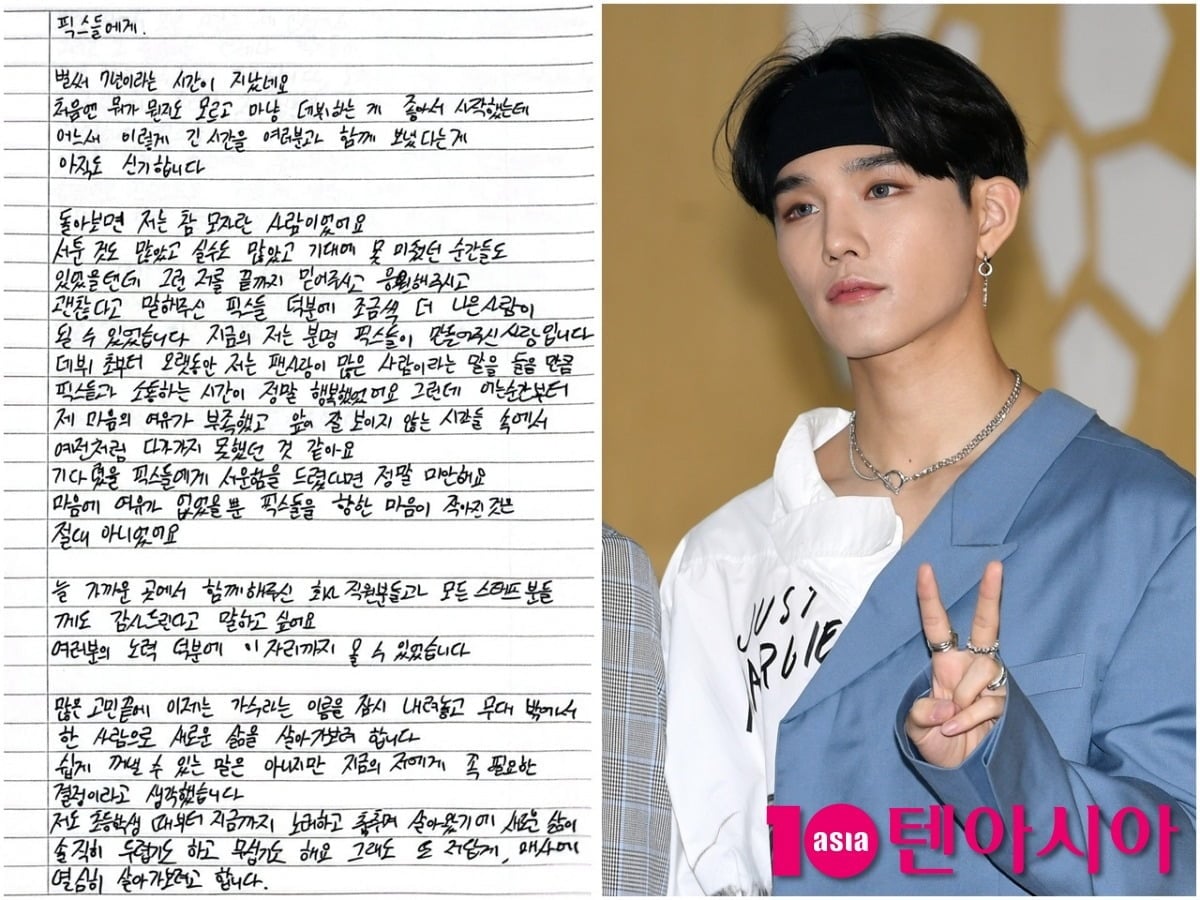 픽스들에게.
벌써 7년이라는 시간이 지났네요
처음엔 뭐가 뭔지도 모르고 마냥 데뷔하는 게 좋아서 시작했는데
어느새 이렇게 긴 시간을 여러분과 함께 보냈다는게
아직도 신기합니다
돌아보면 저는 참 모자란 사람이었어요
서툰 것도 많았고 실수도 많았고 기대에 못 미쳤던 순간들도
있었을텐데 그런 저를 끝까지 믿어주시고 응원해주시고
괜찮다고 말해주신 픽스들 덕분에 조금씩 더 나은사람이
될 수 있었습니다 지금의 저는 분명 픽스들이 만들어주신사람입니다
데뷔 초부터 오랫동안 저는 팬사랑이 많은 사람이라는 말을 들을 만큼
픽스들과 소통하는 시간이 정말 행복했었어요 그런데 어느순간부터
제 마음의 여유가 부족했고 앞이 잘 보이지 않는 시간들 속에서
예전처럼 다가가지 못했던 것 같아요
기다렸을 픽스들에게 서운함을 드렸다면 정말 미안해요
마음에 여유가 없었을 뿐 픽스들을 향한 마음이 작아진 것은
절대 아니었어요
늘 가까운 곳에서 함께해주신 회사 직원분들과 모든 스태프분들
께도 감사드린다고 말하고 싶어요
여러분의 노력 덕분에 이 자리까지 올 수 있었습니다
많은 고민끝에 이제는 가수라는 이름을 잠시 내려놓고 무대 밖에서
한 사람으로 새로운 삶을 살아가보려 합니다
쉽게 꺼낼 수 있는 말은 아니지만 지금의 저에게 꼭 필요한
결정이라고 생각했습니다
저도 초등학생 때부터 지금까지 노래하고 춤추며 살아왔기에 새로운 삶이
솔직히 두렵기도 하고 무섭기도 해요 그래도 또 저답게, 매사에
열심히 살아가보려고 합니다.
JUST
10 asia 텐아시아